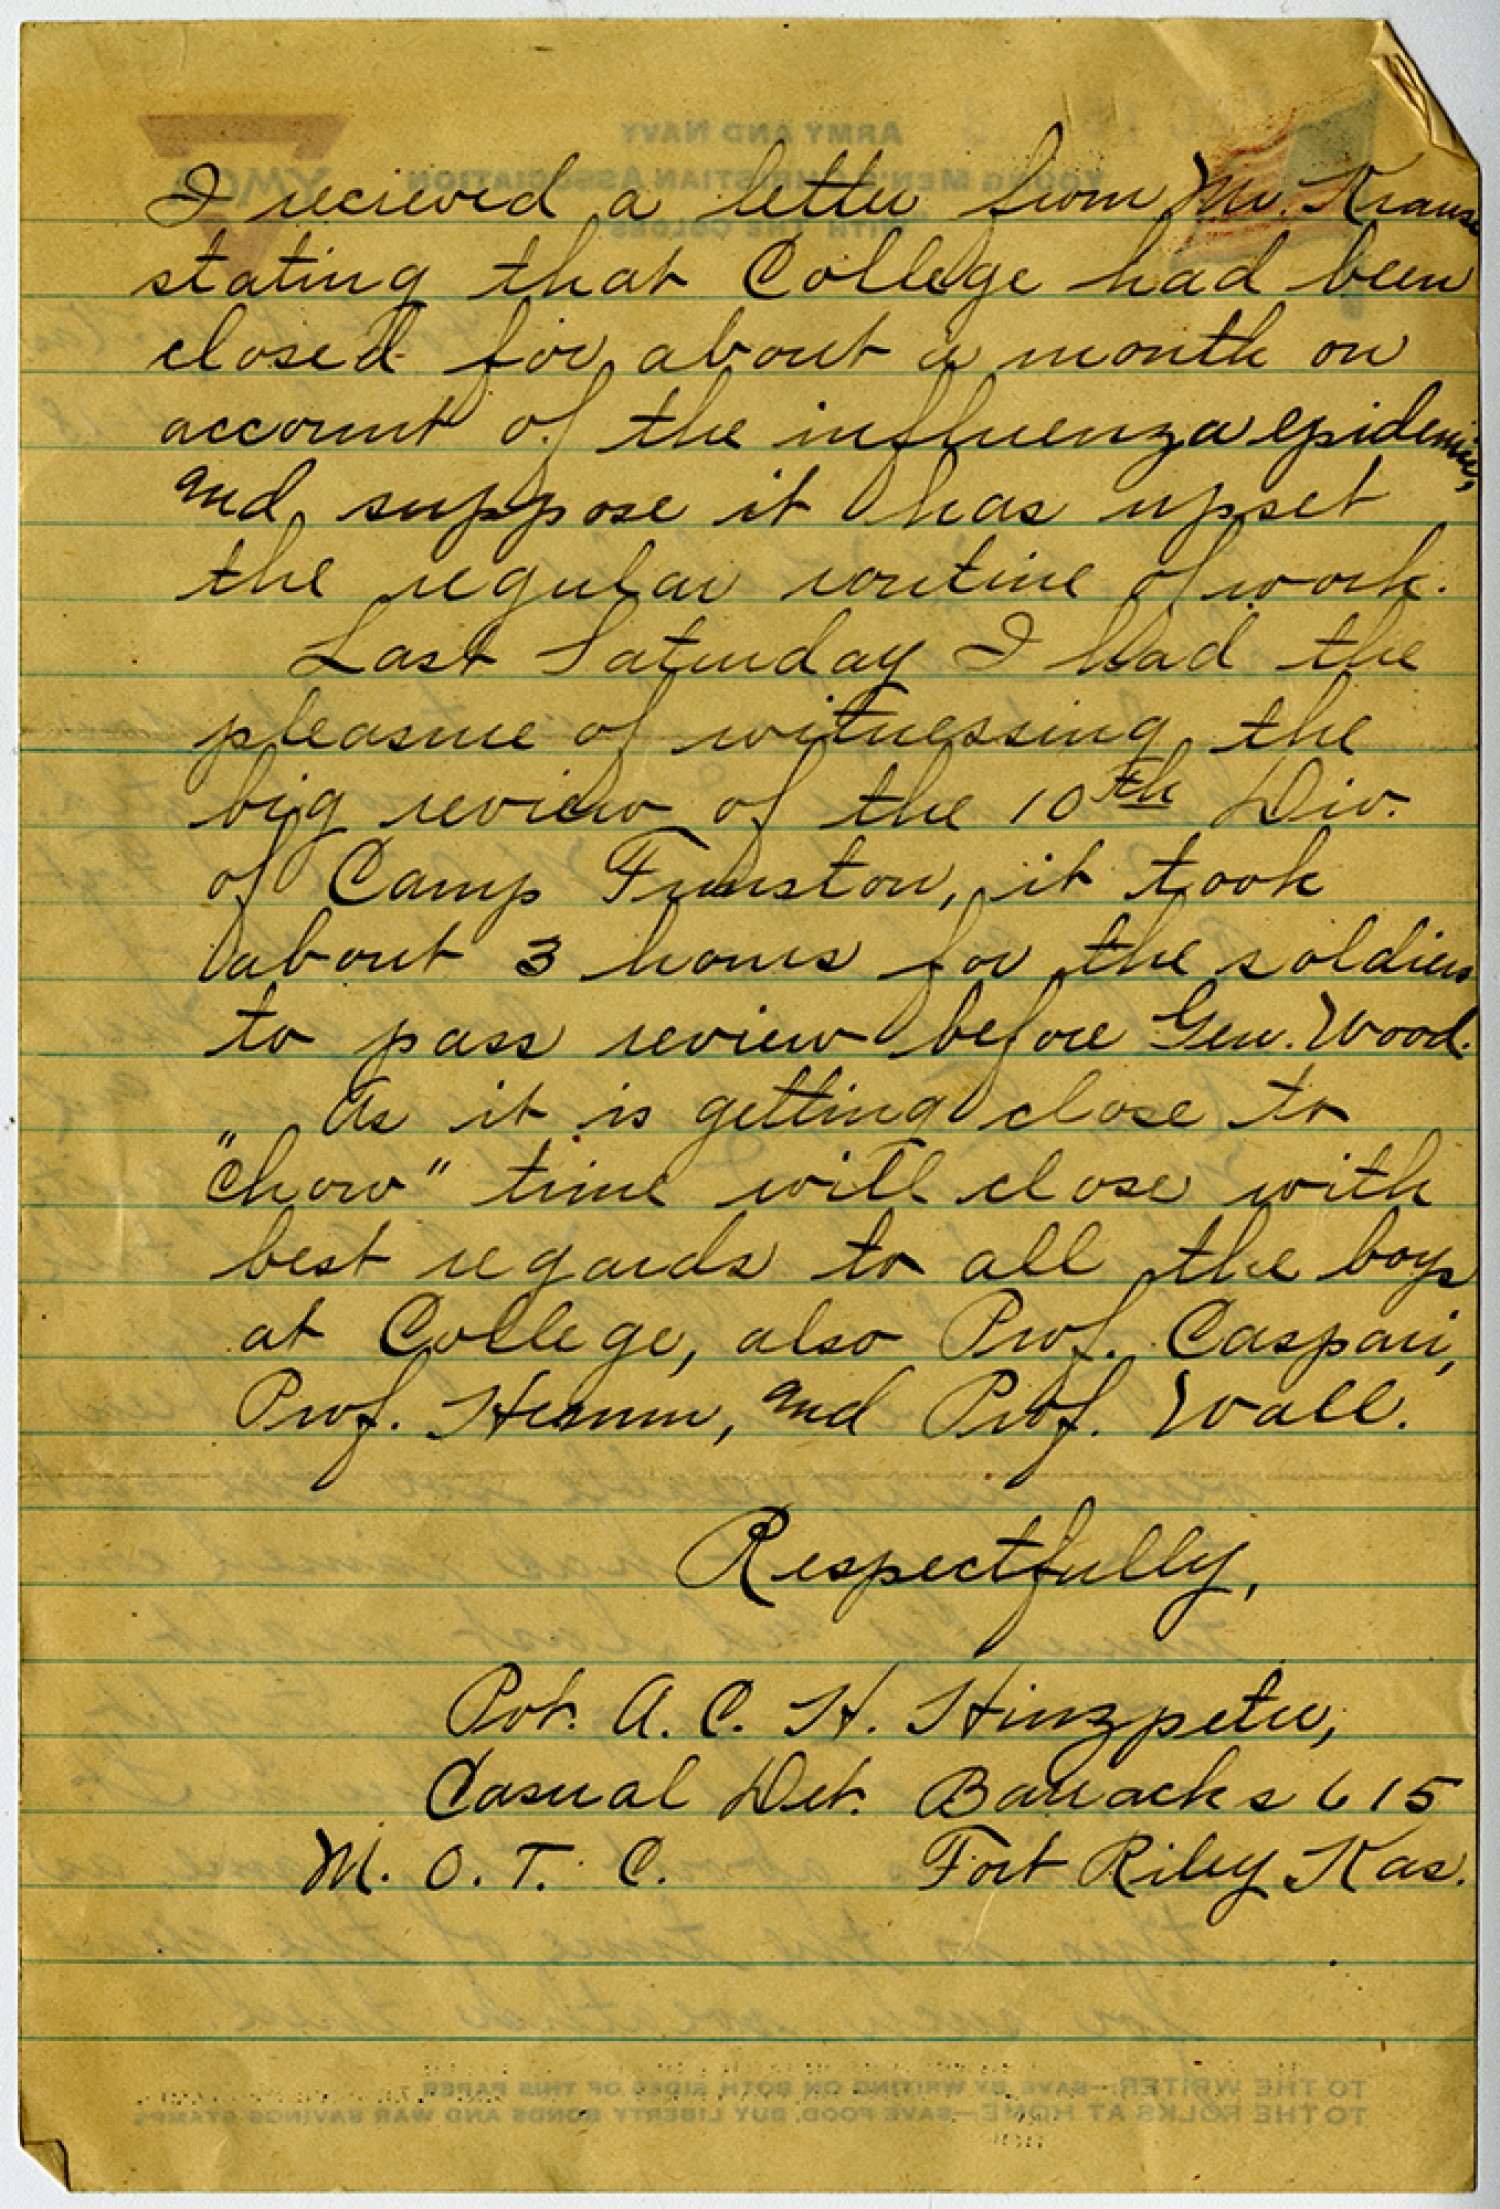 I recieved a letter from Mr. Kraus
stating that College had been
closed for about a month on
account of the influenza epidemic,
and suppose it has upset
the regular routine of work.
Last Saturday I had the
pleasure of witnessing the
big review of the 10th Div.
of Camp Funston, it took
about 3 hours for the soldiers
to pass review before Gen. Wood.
As it is getting close to
"chow" time will close with
best regards to all the boys
at College, also Prof. Caspari,
Prof. Hemm, and Prof. Wall.
Respectfully,
Pvt. A. C. H. Hinzpeter,
Casual Det. Barracks 615
M. O. T. C. Fort Riley Kas.
ARMY AND NAVY
YOUNG MEN'S CHRISTIAN ASSOCIATION
WITH THE COLORS
YMCA
TO THE WRITER:—SAVE BY WRITING ON BOTH SIDES OF THIS PAPER
TO THE FOLKS AT HOME:—SAVE FOOD, BUY LIBERTY BONDS AND WAR SAVINGS STAMPS